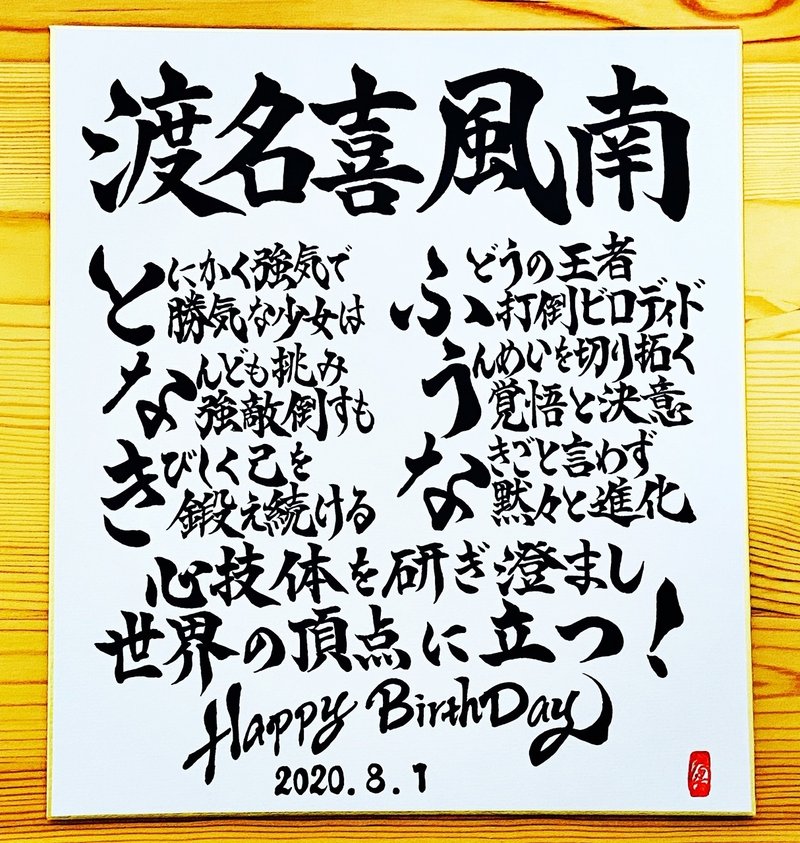 渡名喜風南
とにかく強気で
勝気な少女は
なんども挑み
強敵倒すも
きびしく己を
鍛え続ける
ふどうの王者
打倒ビロディド
うんめいを切り拓く
覚悟と決意
なきごと言わず
黙々と進化
心技体を研ぎ澄まし
世界の頂点に立つ!
Happy BirthDay
2020.8.1